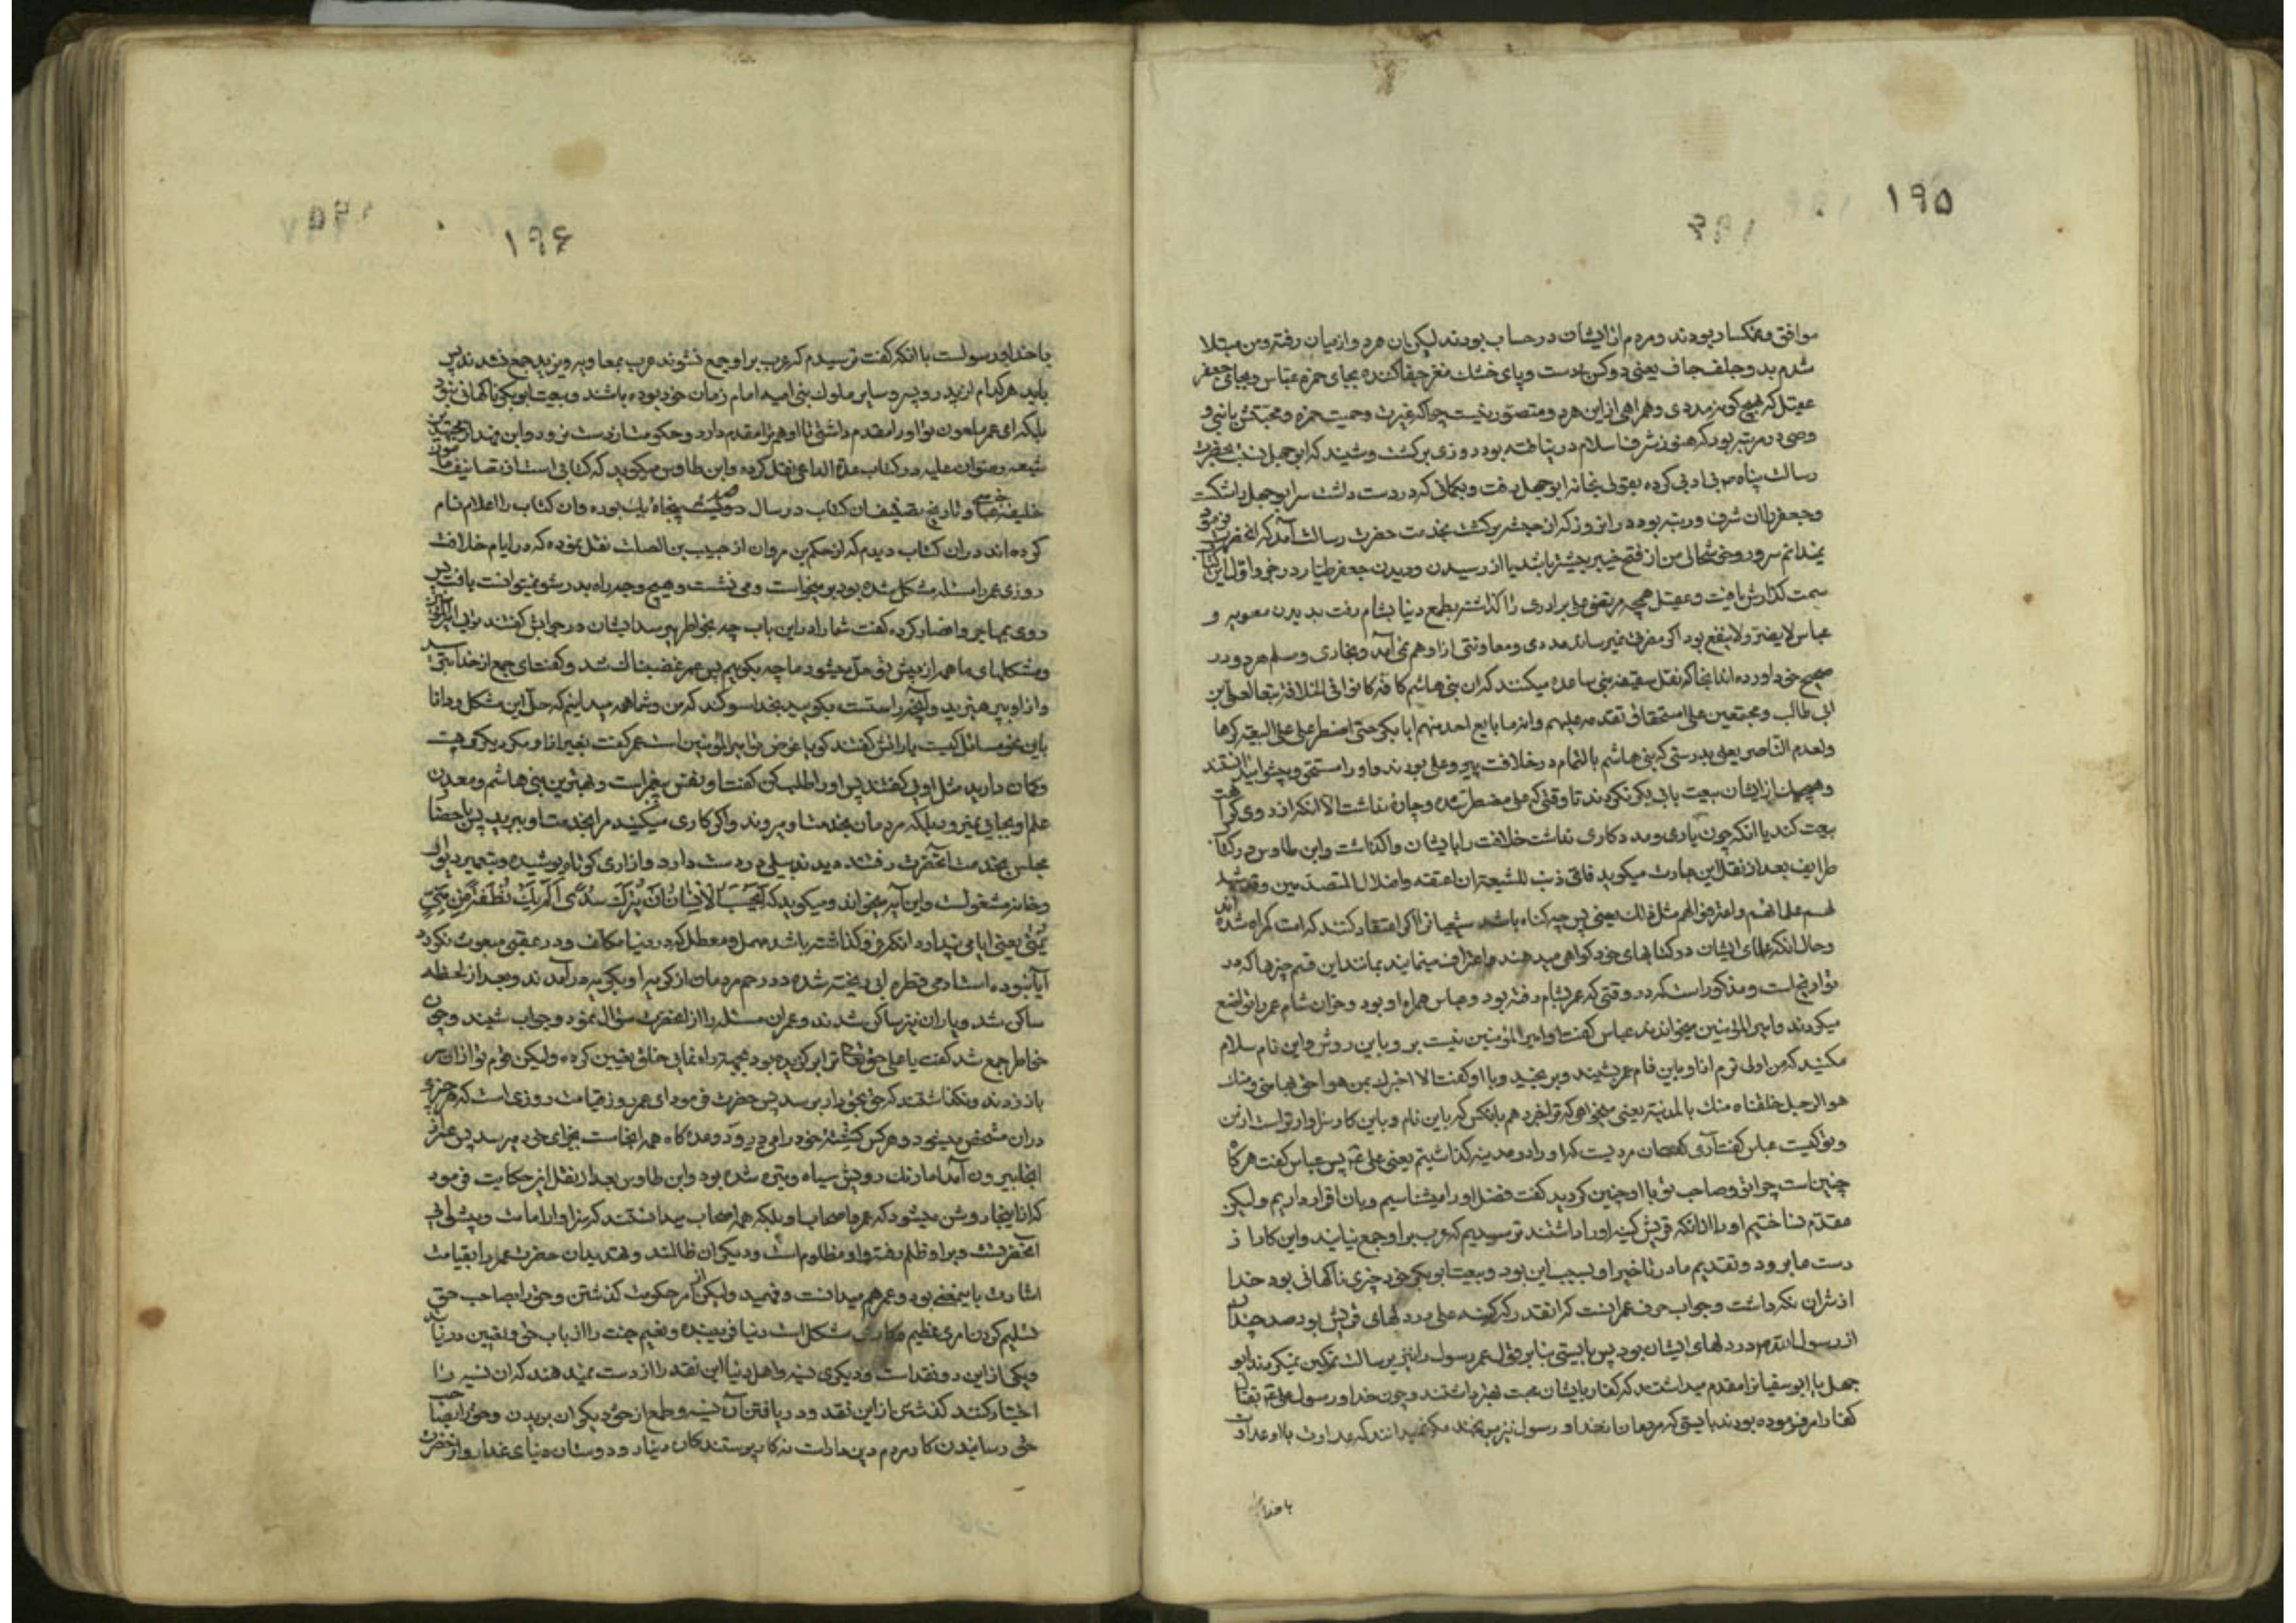 ۱۹۵
موافق و غمکسار بودند و مردم از ایشان در حساب بودند لیکن آن هر دو از میان رفته و من مبتلا
شدم بدو جلف جاف یعنی دو کن دست و پای خشک مغز جفا کننده بجای حمزه عباس و بجای جعفر
عقیل که هیچ کونه مددی و همراهی از این هر دو متصور نیست چرا که غیرت و حمیت حمزه و محبتش با نبی و
وصی در مرتبه بود که هنوز شرف اسلام در نیافته بود روزی برکشت و شنید که ابو جهل نسبت بحضرت
رسالت پناه ص بی ادبی کرده بقولی بخانه ابو جهل رفت و بکمانی که در دست داشت سر ابو جهل را شکست
و جعفر را آن شرف و رتبه بود در انروز که از حبشه برکشت بخدمت حضرت رسالت آمد که انحضرت فرمود
نمیدانم سرور و خوشحالی من از فتح خیبر بیشتر باشد یا از رسیدن و دیدن جعفر طیار در جزو اول این کتاب
سمت کذارش یافت و عقیل همچه مرتضی علی برادری را کذاشته بطمع دنیا بشام رفت بدیدن معویه و
عباس لا یضر و لا ینفع بود اکر مضرت نمیرساند مددی و معاونتی از او هم نمی آمد و بخاری و مسلم هر دو در
صحیح خود آورده اند انجا که نقل سقیفه بنی ساعده میکنند که ان بنی هاشم کافة کانوا فی الخلافة تبعا لعلی بن
ابی طالب و مجتمعین علی استحقاق تقدمه علیهم و انه ما بایع احد منهم ابا بکر حتی اضطر علی علی البیعة کرها
و لعدم الناصر یعنی بدرستی که بنی هاشم بالتمام در خلافت پیرو علی بودند و او را مستحق و پیشوا میدانستند
و هیچیک از ایشان بیعت بابی بکر نکردند تا وقتی که علی مضطر شده و چاره نداشت الا آنکه از روی کراهت
بیعت کند یا انکه چون یاری و مدد کاری نداشت خلافت را بایشان واکذاشت و ابن طاوس در کتاب
طرایف بعد از نقل این عبارت میکوید فای ذنب للشیعة ان اعتقدوا ضلال المتقدمین و قد شهد
لهم علمائهم و اعترفوا لهم مثل ذلك یعنی پس چه کناه باشد شیعیان را اکر اعتقاد کنند که امت کمراه شده اند
و حال انکه علمای ایشان در کتابهای خود کواهی میدهند و اعتراف مینمایند بمانند این قسم چیزها که در
تواریخ است و مذکور است که در وقتی که عمر بشام رفته بود و عباس همراه او بود و خزان شام عمر را تواضع
میکردند و امیر المؤمنین میخواندند عباس کفت او امیر المؤمنین نیست برو باین روش و این نام سلام
مکنید که من اولی ترم از او باین نام عمر شنید و برنجید و با او کفت الا اخبرك بمن هو احق بها منی و منك
هو الرجل خلفناه منك بالمدینة یعنی میخواهی که تو را خبر دهم بانکس که باین نام و باین کار سزاوارتر است از من
و تو کیست عباس کفت آری کفت ان مردیست که او را در مدینه کذاشتیم یعنی علی ع پس عباس کفت هر کاه
چنین است چرا تو و صاحب تو با او چنین کردید کفت فضل او را میشناسیم و بان اقرار داریم و لیکن
مقدم نساختیم او را از انکه قریش کینه او را داشتند ترسیدیم که عرب بر او جمع نیایند و این کار از
دست ما برود و تقدیم ما در تاخیر او بسبب این بود و بیعت ابو بکر خود چیزی ناکهانی بود خدا
از شر آن نکه داشت و جواب حرف عمر انست که انقدر که کینه علی در دلهای قریش بود صد چندان
از رسول الله ص در دلهای ایشان بود پس بایستی بنابر قول عمر رسول را نیز برسالت تمکین نمیکردند ابو
جهل یا ابو سفیان را مقدم میداشتند که کفار را بایشان محبت بیشتر داشتند و چون خدا و رسول علی را بقتل
کفار امر فرموده بودند بایستی که مردمان از خدا و رسول نیز برنجند مکر نمیدانند که عداوت با او عداوت
با خدا
۱۹۶
با خدا و رسولست با انکه کفت ترسیدم که عرب بر او جمع نشوند عرب بمعاویه و یزید جمع نشدند پس
باید هر کدام از یزید و پدر و سایر ملوك بنی امیه امام زمان خود بوده باشند و بیعت ابو بکر ناکهانی نبود
بلکه ای عمر ملعون تو او را مقدم داشتی تا او هم ترا مقدم دارد و حکومت از دست نرود و ابن فهد از مجتهدین
شیعه رضوان علیه در کتاب عدة الداعی نقل کرده و ابن طاوس میکوید که کتابی است از تصانیف مامون
خلیفه عباسی و تاریخ تصنیف ان کتاب در سال دویست پنجاه یك بوده و ان کتاب را اعلام نام
کرده اند در ان کتاب دیدم که از حکم بن مروان از حبیب بن الصلت نقل نموده که در ایام خلافت
روزی عمر را مسئله مشکل شده بود بر میخواست و می نشست و هیچ وجه راه بدر شو نمیتوانست یافت پس
روی بمهاجر و انصار کرده کفت شما را در این باب چه بخاطر میرسد ایشان در جوابش کفتند توئی امیر المؤمنین
و مشکلهای ما همه از پیش تو حل میشود ما چه بکوییم پس عمر غضبناك شد و کفت ای جمع از خدا بترسید
و از او بپرهیزید و آنچه راستست بکویید بخدا سوکند که من و شما همه میدانیم که حل این مشکل و دانا
باین نحو مسائل کیست یارانش کفتند کویا غرض تو امیر المؤمنین است عمر کفت بغیر از او مکر دیکری هست
و کمان دارید مثل اویی کفتند پس او را طلب کن کفت او نفس پیغمبر است و بهترین بنی هاشم و معدن
علم او بجایی نمیرود بلکه مردمان بخدمت او میروند و اکر کاری میکنید مرا بخدمت او ببرید پس با حضار
مجلس بخدمت آنحضرت رفتند دیدند بیلی در دست دارد و ازاری کوتاه پوشیده و بتعمیر دیوار
و خانه مشغولست و این آیه میخواند و میکوید که اَیَحْسَبُ الْاِنْسانُ اَنْ یُتْرَكَ سُدًی اَلَمْ یَكُ نُطْفَةً مِنْ مَنِیٍّ
یُمْنی یعنی ایا می پندارد انکه فرو کذاشته باشد مهمل و معطل که در دنیا مکلف و در عقبی مبعوث نکردد
آیا نبوده است ادمی قطره ابی ریخته شده در رحم مردمان از کریه او بکریه در آمدند و بعد از لحظه
ساکن شد و یاران نیز ساکن شدند و عمر ان مسئله را از انحضرت سؤال نمود و جواب شنید و چون
خاطر جمع شد کفت یا علی حق تعالی ترا برکزیده بود بجهت راه نمایی خلق تعیین کرده و لیکن قوم تو از ان سر
باز زدند و نکذاشتند که حق بحق دار برسد پس حضرت فرمود ای عمر روز قیامت روزی است که هر چیزی
در ان مشخص میشود و هر کس کشته خود را می درود و وعده کاه همه انجاست بجزای خود میرسد پس عمر از
انجا بیرون آمد اما رنك رویش سیاه و تیره شده بود و ابن طاوس بعد از نقل این حکایت فرمود
که از اینجا روشن میشود که عمر و اصحاب او بلکه همه اصحاب میدانستند که سزاوار امامت و پیشوائی
انحضرتست و بر او ظلم رفته و او مظلوم است و دیکران ظالمند و تهدیدان حضرت عمر را بقیامت
اشارت باینمعنی بود و عمر هم میدانست و فهمید و لیکن از سر حکومت کذشتن و حق را بصاحب حق
تسلیم کردن امری عظیم مشکل است دنیا فریبنده و نعیم جنت را از باب حق و یقین دریابد
و یکی از این دو نقد است و دیکری نسیه و اهل دنیا این نقد را از دست نمیدهند که ان نسیه را
اختیار کنند کذشتن از این نقد و دریافتن آن نسیه و طمع از حق دیکران بریدن و حق را بصاحب
حق رسانیدن کار مردم دین دارست نه کار پرستندکان دینار و دوستان دنیای غدار و از حضرت